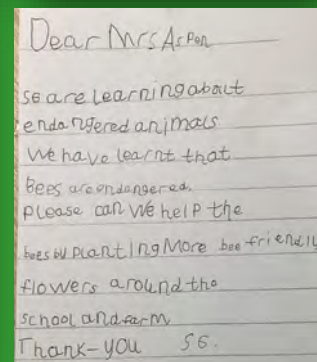 Dear Mrs Aspen
S6 are learning about
endangered animals
We have learnt that
Bees are endangered.
please can We help the
bees by planting More bee friendly
flowers around the
school and farm
Thank-you S6.